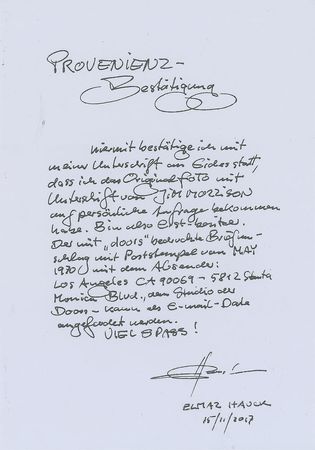 PROVENIENZ-
Bestätigung
Hiermit bestätige ich mit
meiner Unterschrift an Eides statt,
dass ich das Originalfoto mit
Unterschrift von JIM MORRISON
auf persönliche Anfrage bekommen
habe. Bin also Erst-besitzer.
Der mit "doors" bedruckte Briefum-
schlag mit Poststempel vom MAY
1970 mit dem Absender:
LOS Angeles CA 90069 - 5812 Santa
Monica Blvd., dem Studio der
Doors - kann als E-mail-Datei
angefordert werden.
VIEL SPASS!
ELMAR HAUCK
15/11/2017